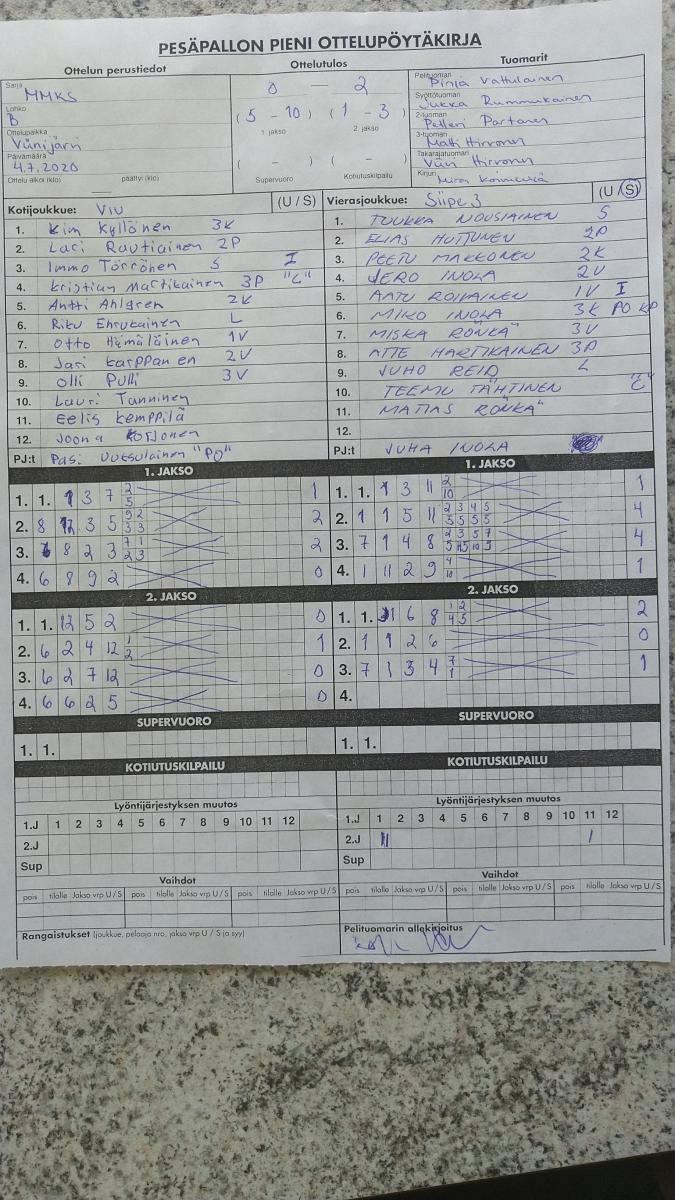 PESÄPALLON PIENI OTTELUPÖYTÄKIRJA
Ottelun perustiedot
Sarja
MMKS
Lohko
B
Ottelupaikka
Viinijärvi
Päivämäärä
4.7.2020
Ottelu alkoi (klo) päättyi (klo)
Ottelutulos
0 — 2
(5 - 10) (1 - 3)
1. jakso 2. jakso
( - ) ( - )
Supervuoro Kotiutuskilpailu
Tuomarit
Pelituomari
Pinja Vattulainen
Syöttötuomari
Jukka Rummukainen
2-tuomari
Petteri Partanen
3-tuomari
Matti Hirvonen
Takarajatuomari
Väin Hirvonen
Kirjuri
Mira
Kotijoukkue: ViU (U / S)
1. Kim Kyllönen 3K
2. Lari Rautiainen 2P
3. Immo Törrönen S I
4. Kristian Martikainen 3P "C"
5. Antti Ahlgren 2K
6. Riku Ehrukainen L
7. Otto Hämäläinen 1V
8. Jari Karppanen 2V
9. Olli Pulli 3V
10. Lauri Tanninen
11. Eelis Kemppilä
12. Joona Korjonen
PJ:t Pasi Uuksulainen "PO"
Vierasjoukkue: Siipe 3 (U / S)
1. TUUKKA NOUSIAINEN S
2. ELIAS HUTTUNEN 2P
3. PEETU MAKKONEN 2K
4. JERO INOLA 2V
5. AATU ROIHAINEN 1V I
6. MIKO INOLA 3K PO KP
7. MISKA RÖNKÄ 3V
8. ATTE HARTIKAINEN 3P
9. JUHO REID L
10. TEEMU TÄHTINEN "C"
11. MATIAS RÖNKÄ
12.
PJ:t JUHA INOLA
1. JAKSO
1. 1. 1 3 7 2 5 1
2. 8 12 3 5 2
3. 8 2 3 2
4. 6 8 9 2 0
2. JAKSO
1. 1. 12 5 2 0
2. 6 2 4 12 1 2 1
3. 6 2 7 12 0
4. 6 6 2 5 0
SUPERVUORO
1. 1.
KOTIUTUSKILPAILU
1. JAKSO
1. 1. 1 3 11 2 10 1
2. 1 1 5 11 2 3 4 5 5 5 5 5 4
3. 7 1 4 8 2 3 5 7 4
4. 1 11 2 9 4 10 1
2. JAKSO
1. 1. 11 6 8 1 2 4 5 2
2. 1 1 2 6 0
3. 7 1 3 4 7 1 1
4.
SUPERVUORO
1. 1.
KOTIUTUSKILPAILU
Lyöntijärjestyksen muutos
1.J 1 2 3 4 5 6 7 8 9 10 11 12
2.J
Sup
Vaihdot
pois tilalle Jakso vrp U / S pois tilalle Jakso vrp U / S pois tilalle Jakso vrp U / S
Rangaistukset (joukkue, pelaaja nro, jakso vrp U / S ja syy)
Lyöntijärjestyksen muutos
1.J 1 2 3 4 5 6 7 8 9 10 11 12
2.J 11 1
Sup
Vaihdot
pois tilalle Jakso vrp U / S pois tilalle Jakso vrp U / S pois tilalle Jakso vrp U / S
Pelituomarin allekirjoitus